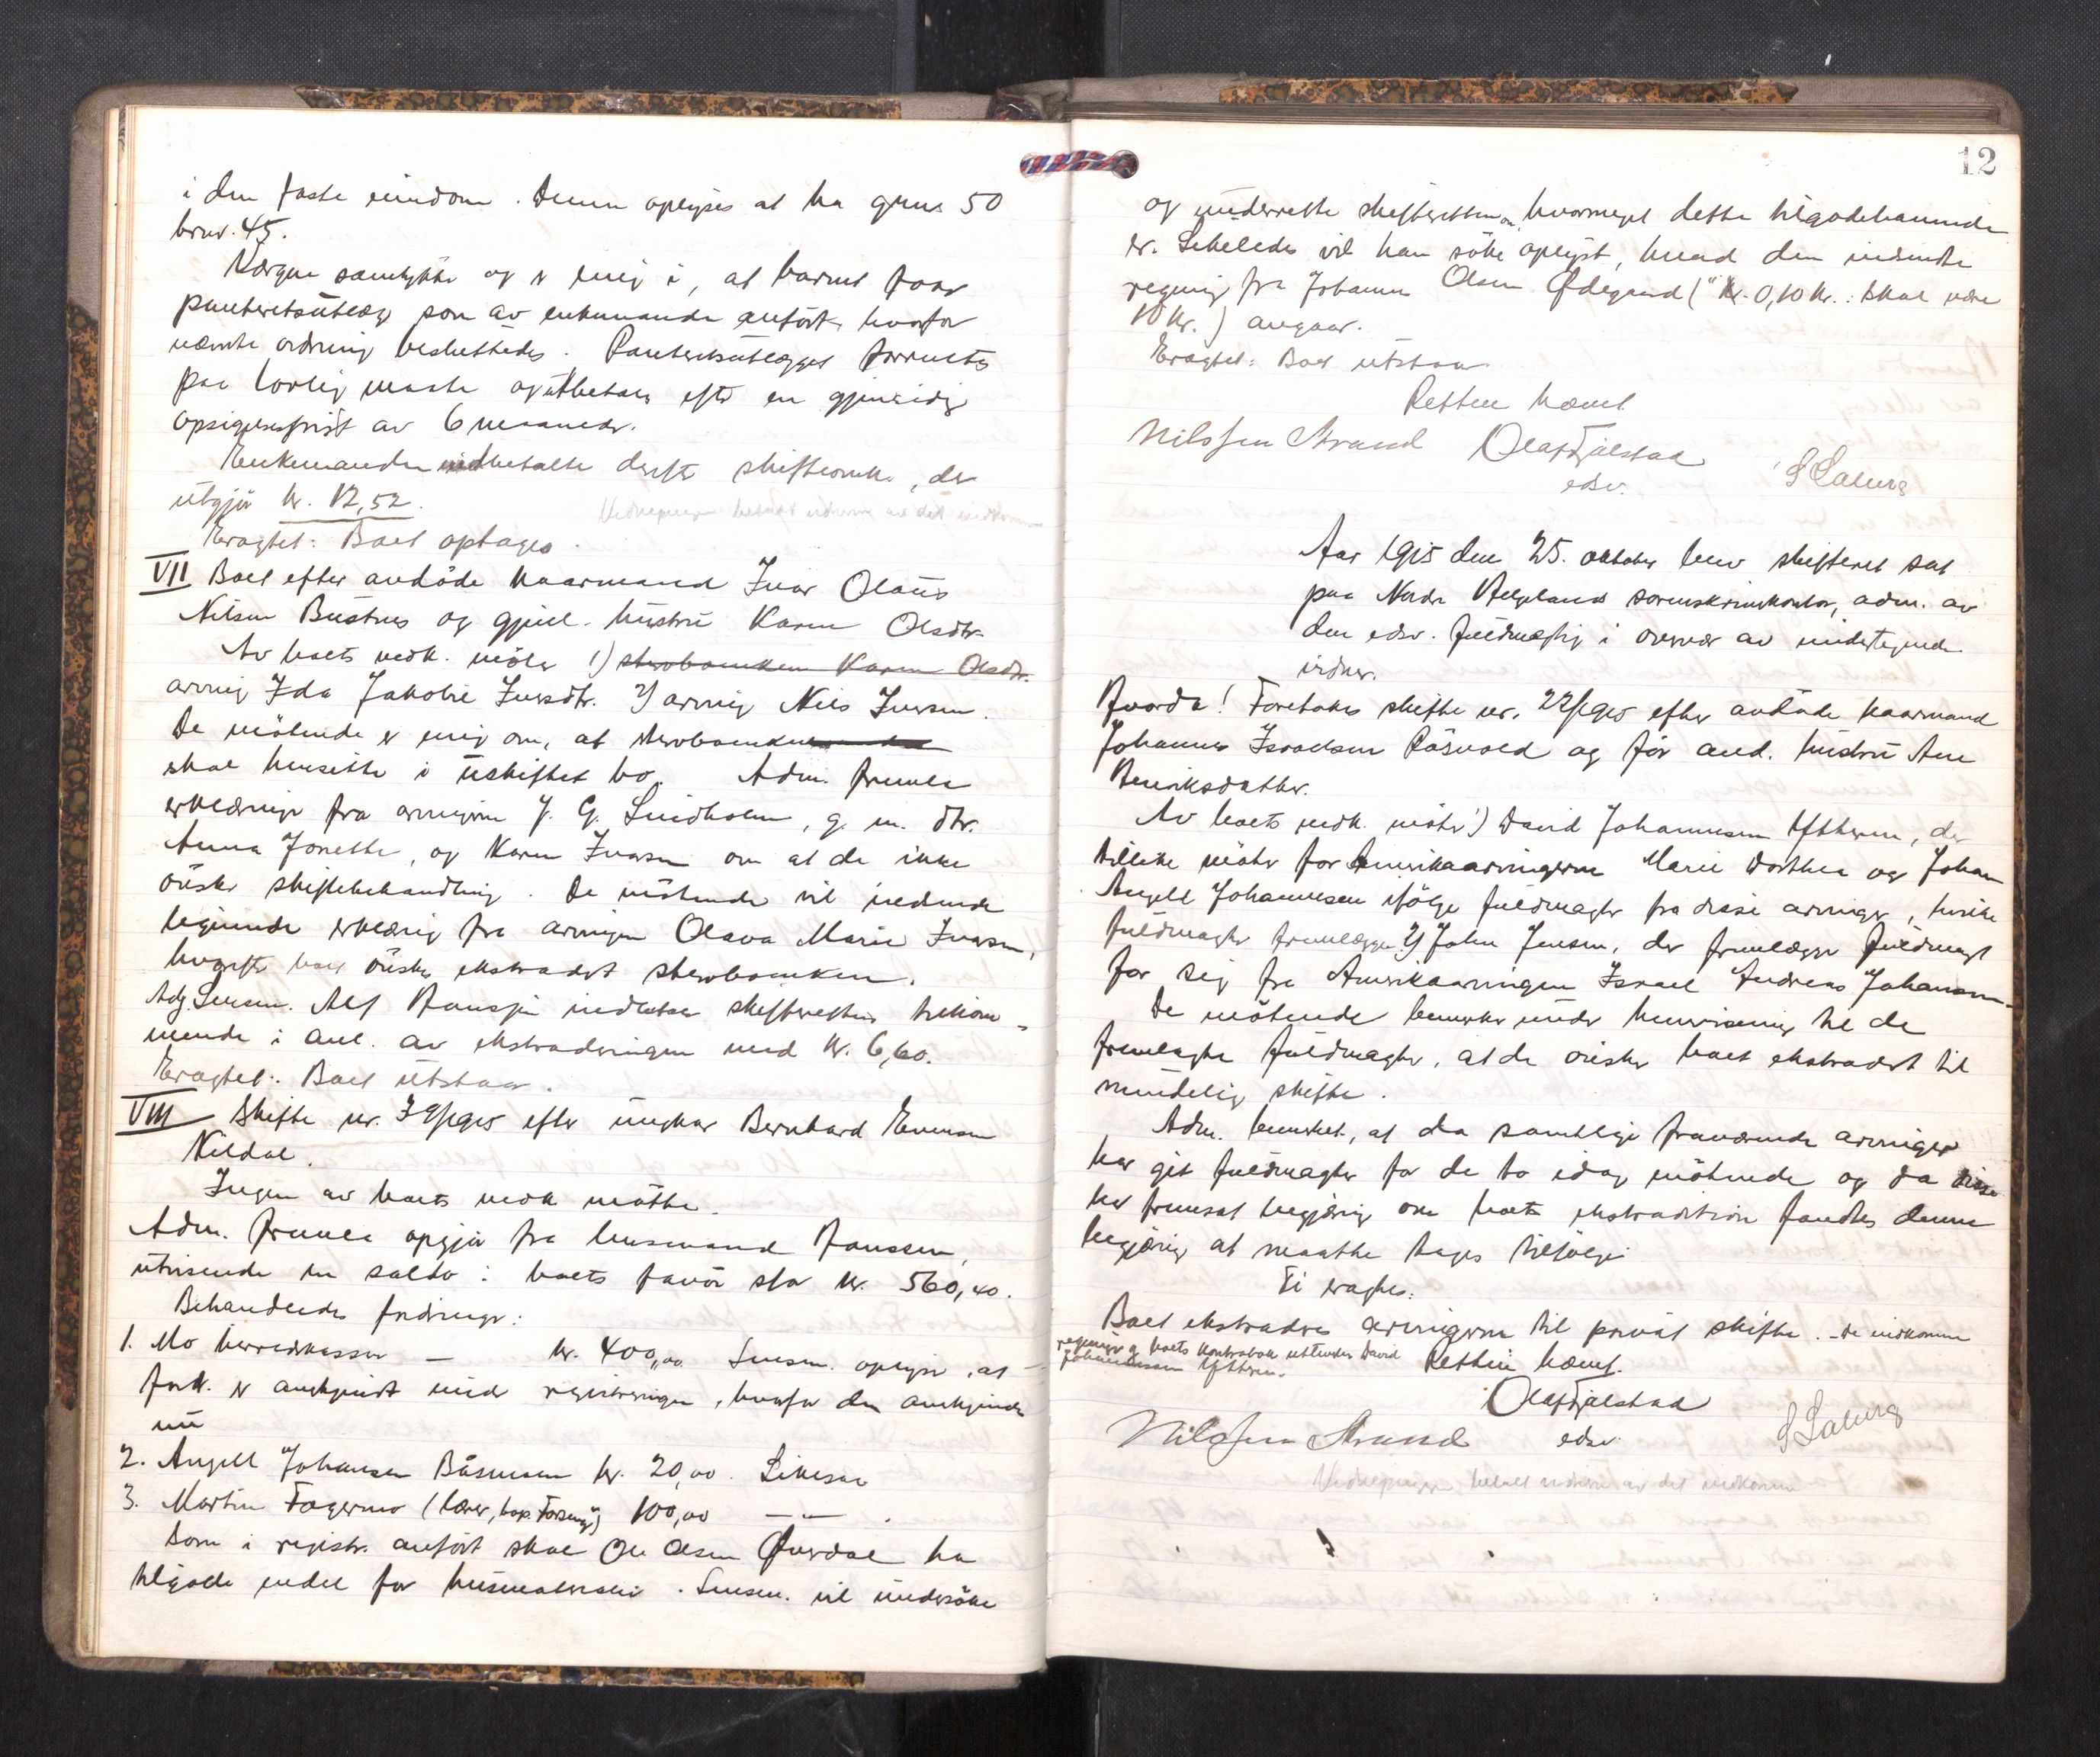 i den faste eiendom. Denne oplyses at ha gnr. 50
brnr. 45.
Værgen samtykket og er enig i, at barnet faar
panteretsutlæg som av enkemanden anført, hvorfor
nævnte ordning besluttedes. Panteretsutlægget forrentes
paa lovlig maate og utbetales efter en gjensidig
opsigelsesfrist av 6 maaneder.
Enkemanden indbetalte derefter skifteomk., der
utgjør kr. 12,52.
Eragtet: Boet optages.
VII Boet efter avdøde kaarmand Ivar Olaus
Nilsen Bustnes og gjenl. hustru Karen Olsdtr.
Av boets vedk. møter 1) stervboenken Karen Olsdtr.
arving Ida Jakobie Iversdtr. 2) arving Nils Iversen.
De møtende er enig om, at stervboenken
skal hensitte i uskiftet bo. Adm. fremla
erklæringer fra arvingerne J. G. Lindholm, g. m. dtr.
Anna Jonette, og Karen Ivarsen om at de ikke
ønsker skiftebehandling. De møtende vil indsende
lignende erklæring fra arvingen Olava Marie Ivarsen,
hvorefter boet ønskes ekstradert stervboenken.
Adj. Lensm. Alf Ranssjø indbetaler skifterettens tilkom-
mende i anl. av ekstraderingen med kr. 6,60.
Eragtet: Boet utstaar.
VIII Skifte nr. 39/1915 efter ungkar Bernhard Evensen
Nildal.
Ingen av boets vedk møtte.
Adm. fremla opgjør fra lensmand Hanssen,
utvisende en saldo i boets favør stor kr. 560,40.
Behandledes fordringer:
1. Mo herredskasse — kr. 400,00 Lensm. oplyser, at
fork. er anerkjendt under registreringen, hvorfor den anerkjendes
nu
2. Angell Johansen Båsmoen kr. 20,00. Likesaa
3. Martin Fagermo (lærer, kap. Forseng) 100,00 — — .
Som i registr. anført skal Ole Olsen Øverdal ha
tilgode endel for husmateriale. Lensm. vil undersøke
12
og underrette skifteretten om, hvormeget dette tilgodehavende
er. Likeledes vil han søke oplyst, hvad den indsendte
regning fra Johannes Olsen Ødegaard ("Kr. 0,10 kr.: skal være
10 kr.) angaar.
Eragtet: Boet utstaar
Retten hævet
Nils Jen Strand Olaf Fjalstad S Laberg
edsv.
Aar 1915 den 25. oktober blev skifteret sat
paa Nordre Helgelands sorenskriverkontor, adm. av
den edsv. fuldmægtig i overvær av undertegnede
vidner.
Hvorda! Foretokes skifte nr. 22/1915 efter avdøde kaarmand
Johannes Israelsen Røsvold og før avd. hustru Ane
Henriksdatter.
Av boets vedk. møter 1) David Johannesen Ytteren, der
tillike møter for Amerikaarvingerne Marie Dorthea og Johan
Angell Johannesen ifølge fuldmagter fra disse arvinger, hvilke
fuldmagter fremlægges 2) John Jensen, der fremlægger fuldmagt
for sig fra Amerikaarvingen Israel Andreas Johansen.
De møtende bemerker under henvisning til de
fremlagte fuldmagter, at de ønsker boet ekstradert til
mindelig skifte.
Adm. bemerket, at da samtlige fraværende arvinger
har git fuldmagter for de to idag møtende og da disse
har fremsat begjæring om boets ekstradition fandtes denne
begjæring at maatte tages tilfølge
Ti eragtes:
Boet ekstraderes arvingerne til privat skifte. – De indkomne
regninger og boets kontrabok utleveres David
Johannessen Ytteren.
Retten hævet.
Olaf Fjalstad
Nils Jen Strand edsv S Laberg